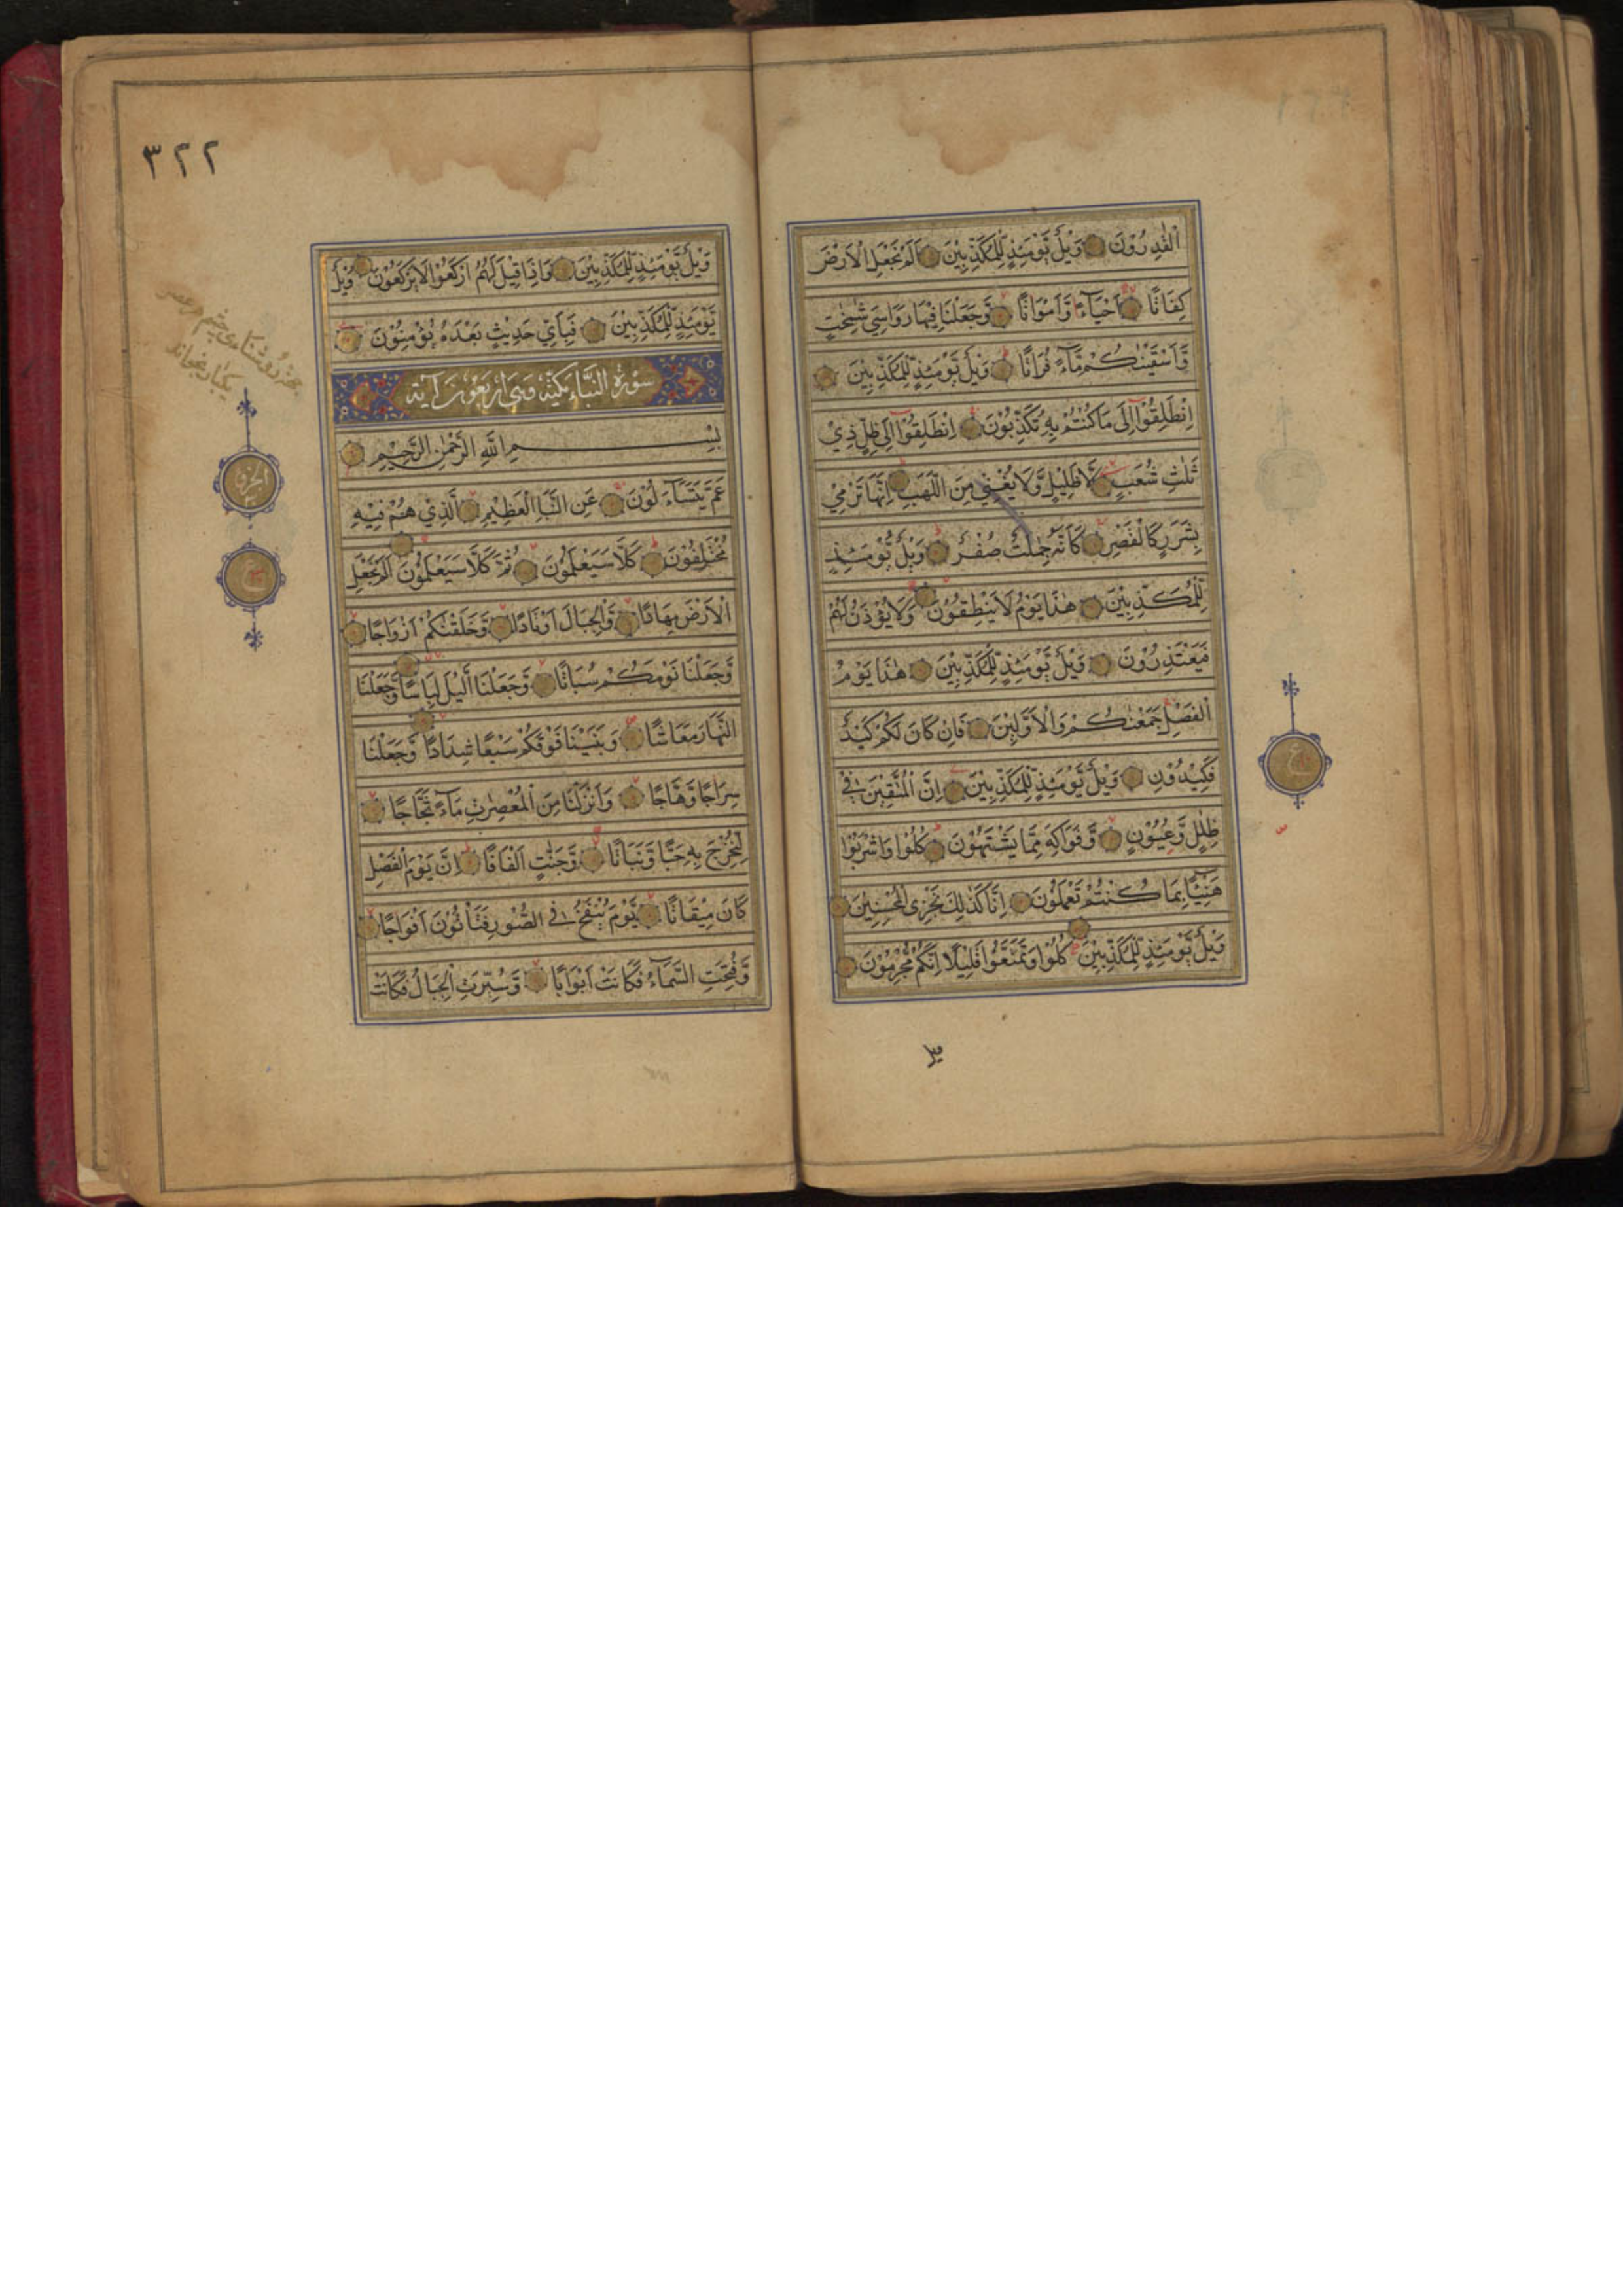 الْقٰدِرُوْنَ وَيْلٌ يَّوْمَئِذٍ لِّلْمُكَذِّبِيْنَ اَلَمْ نَجْعَلِ الْاَرْضَ
كِفَاتًا اَحْيَآءً وَّاَمْوَاتًا وَّجَعَلْنَا فِيْهَا رَوَاسِيَ شٰمِخٰتٍ
وَّاَسْقَيْنٰكُمْ مَّآءً فُرَاتًا وَيْلٌ يَّوْمَئِذٍ لِّلْمُكَذِّبِيْنَ
اِنْطَلِقُوْٓا اِلٰى مَا كُنْتُمْ بِهٖ تُكَذِّبُوْنَ اِنْطَلِقُوْٓا اِلٰى ظِلٍّ ذِيْ
ثَلٰثِ شُعَبٍ لَّا ظَلِيْلٍ وَّلَا يُغْنِيْ مِنَ اللَّهَبِ اِنَّهَا تَرْمِيْ
بِشَرَرٍ كَالْقَصْرِ كَاَنَّهٗ جِمٰلَتٌ صُفْرٌ وَيْلٌ يَّوْمَئِذٍ
لِّلْمُكَذِّبِيْنَ هٰذَا يَوْمُ لَا يَنْطِقُوْنَ وَلَا يُؤْذَنُ لَهُمْ
فَيَعْتَذِرُوْنَ وَيْلٌ يَّوْمَئِذٍ لِّلْمُكَذِّبِيْنَ هٰذَا يَوْمُ
الْفَصْلِ جَمَعْنٰكُمْ وَالْاَوَّلِيْنَ فَاِنْ كَانَ لَكُمْ كَيْدٌ
فَكِيْدُوْنِ وَيْلٌ يَّوْمَئِذٍ لِّلْمُكَذِّبِيْنَ اِنَّ الْمُتَّقِيْنَ فِيْ
ظِلٰلٍ وَّعُيُوْنٍ وَّفَوَاكِهَ مِمَّا يَشْتَهُوْنَ كُلُوْا وَاشْرَبُوْا
هَنِيْٓئًا بِمَا كُنْتُمْ تَعْمَلُوْنَ اِنَّا كَذٰلِكَ نَجْزِى الْمُحْسِنِيْنَ
وَيْلٌ يَّوْمَئِذٍ لِّلْمُكَذِّبِيْنَ كُلُوْا وَتَمَتَّعُوْا قَلِيْلًا اِنَّكُمْ مُّجْرِمُوْنَ
ع
٣٢٢
وَيْلٌ يَّوْمَئِذٍ لِّلْمُكَذِّبِيْنَ وَاِذَا قِيْلَ لَهُمُ ارْكَعُوْا لَا يَرْكَعُوْنَ وَيْلٌ
يَّوْمَئِذٍ لِّلْمُكَذِّبِيْنَ فَبِاَيِّ حَدِيْثٍ بَعْدَهٗ يُؤْمِنُوْنَ
سورة النبأ مكية وهى اربعون آية
بِسْمِ اللّٰهِ الرَّحْمٰنِ الرَّحِيْمِ
عَمَّ يَتَسَآءَلُوْنَ عَنِ النَّبَاِ الْعَظِيْمِ الَّذِيْ هُمْ فِيْهِ
مُخْتَلِفُوْنَ كَلَّا سَيَعْلَمُوْنَ ثُمَّ كَلَّا سَيَعْلَمُوْنَ اَلَمْ نَجْعَلِ
الْاَرْضَ مِهَادًا وَّالْجِبَالَ اَوْتَادًا وَّخَلَقْنٰكُمْ اَزْوَاجًا
وَّجَعَلْنَا نَوْمَكُمْ سُبَاتًا وَّجَعَلْنَا الَّيْلَ لِبَاسًا وَّجَعَلْنَا
النَّهَارَ مَعَاشًا وَبَنَيْنَا فَوْقَكُمْ سَبْعًا شِدَادًا وَّجَعَلْنَا
سِرَاجًا وَّهَّاجًا وَاَنْزَلْنَا مِنَ الْمُعْصِرٰتِ مَآءً ثَجَّاجًا
لِّنُخْرِجَ بِهٖ حَبًّا وَّنَبَاتًا وَّجَنّٰتٍ اَلْفَافًا اِنَّ يَوْمَ الْفَصْلِ
كَانَ مِيْقَاتًا يَّوْمَ يُنْفَخُ فِى الصُّوْرِ فَتَاْتُوْنَ اَفْوَاجًا
وَّفُتِحَتِ السَّمَآءُ فَكَانَتْ اَبْوَابًا وَّسُيِّرَتِ الْجِبَالُ فَكَانَتْ
الجزو
ع